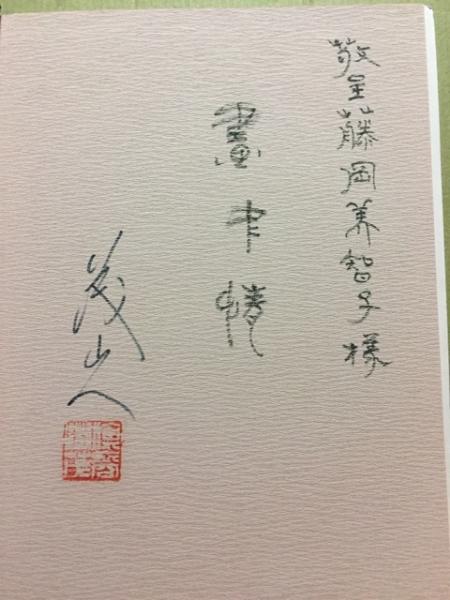 敬呈藤岡美智子様
畫中情
茂山人